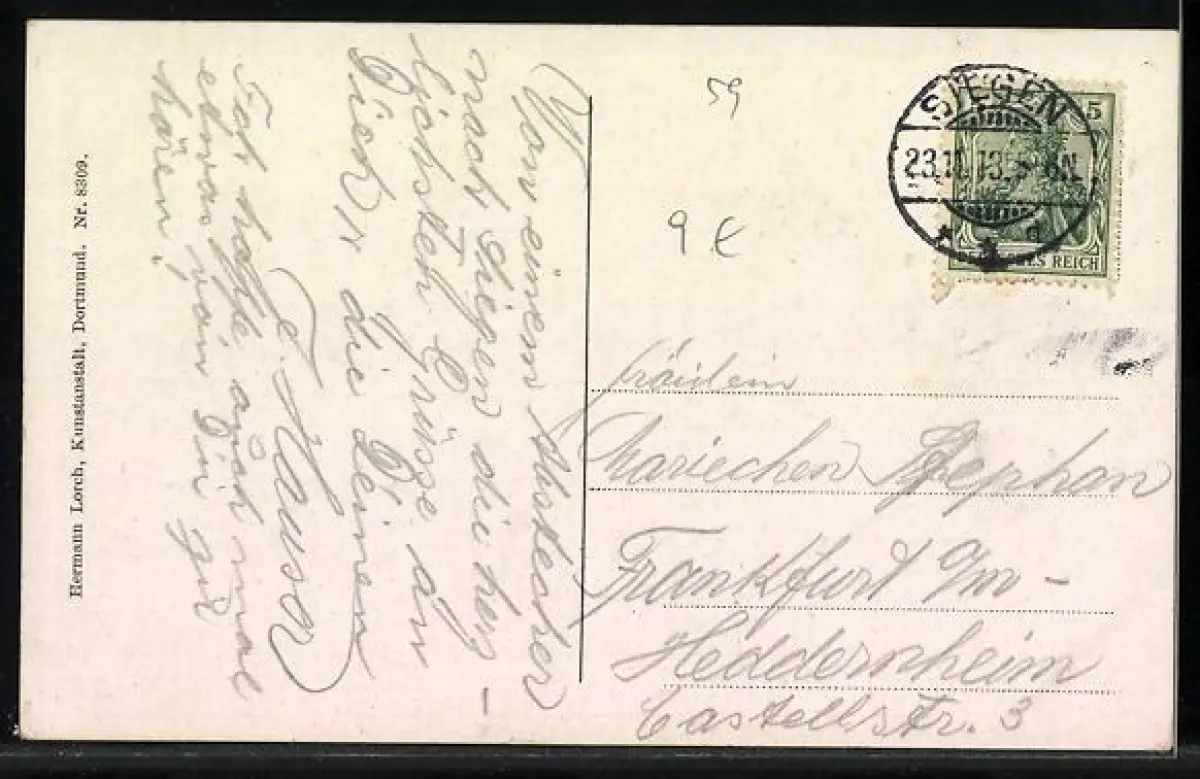 Von einem Abstecher
nach Siegen die herz-
lichsten Grüsse an
Dich, die Deinen
F. Hauser
Ich hoffe auch mal
etwas von Dir zu
hören!
Hermann Lorch, Kunstanstalt, Dortmund. Nr. 8309.
59
9 €
SIEGEN
23.11.13. 5-6N.
* a
5
DEUTSCHES REICH
Fräulein
Mariechen Stephan
Frankfurt a/m -
Heddernheim
Castellstr. 3